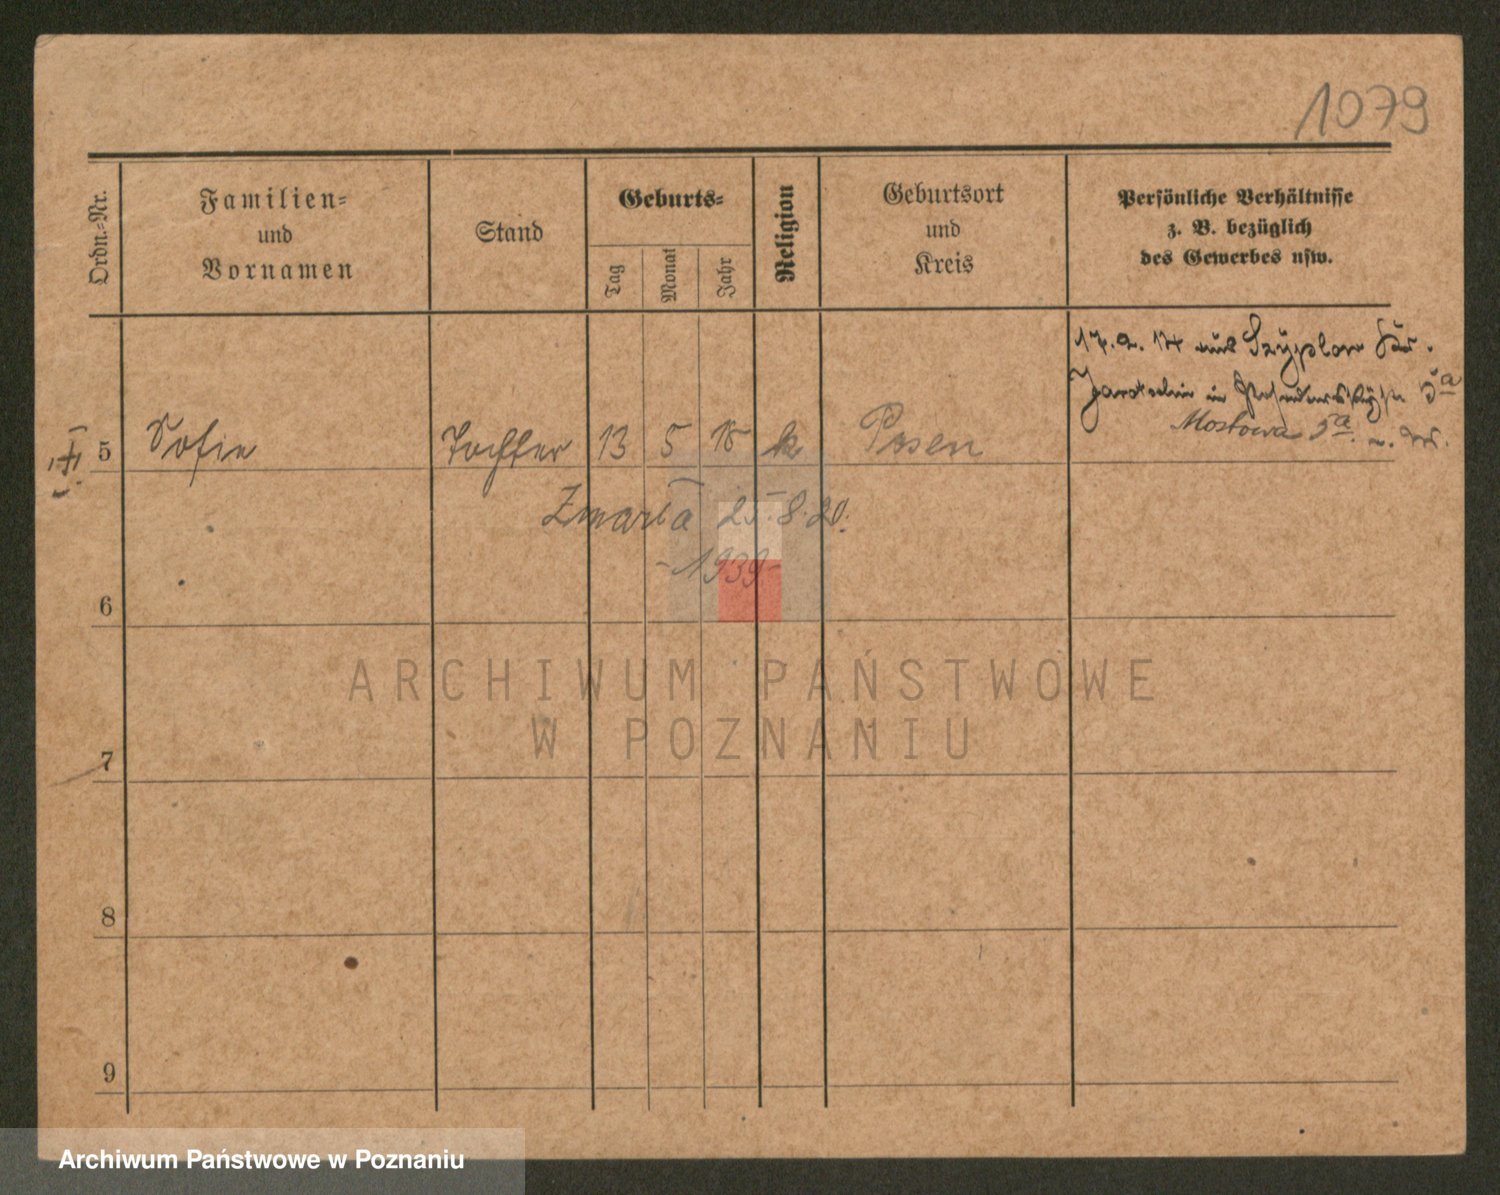 1079
Ordn.-Nr.
Familien-
und
Vornamen
Stand
Geburts-
Tag
Monat
Jahr
Religion
Geburtsort
und
Kreis
Persönliche Verhältnisse
z. B. bezüglich
des Gewerbes usw.
aus
in 5a
Mostowa 5a
5 Sofie Tochter 13 5 18 k Posen
Zmarła 25.8.20.
-1939-
6
ARCHIWUM PAŃSTWOWE
W POZNANIU
7
8
9
Archiwum Państwowe w Poznaniu